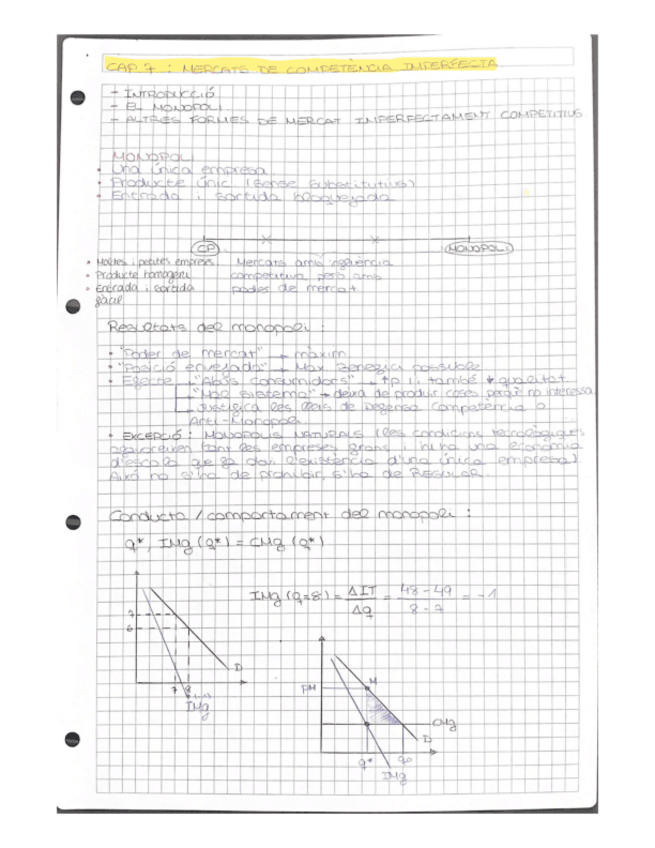 CAP. 7 : MERCATS DE COMPETÈNCIA IMPERFECTA
- INTRODUCCIÓ
- EL MONOPOLI
- ALTRES FORMES DE MERCAT IMPERFECTAMENT COMPETITIUS
MONOPOLI
• Una única empresa
• Producte únic (sense substitutius)
• Entrada i sortida bloquejada
CP MONOPOLI
• Moltes i petites empreses
• Producte homogeni
• Entrada i sortida
fàcil
Mercats amb
competitiva però amb
poder de mercat
Resultats del monopoli :
• "Poder de mercat" → màxim
• "Posició envejada" → Max Benefici possible
• Efecte → "Abús consumidors" → ↑p i també ↓ qualitat
→ "Mal sistema" → deixa de produir coses perquè no interessa
→ Justifica les lleis de Defensa Competència o
Anti-Monopoli
• EXCEPCIÓ : MONOPOLIS NATURALS (les condicions tecnològiques
afavoreixen tant les empreses grans i hi ha una economia
d'escala que fa l'existència d'una única empresa)
Això no s'ha de prohibir, s'ha de REGULAR
Conducta / comportament del monopoli :
q*, IMg (q*) = CMg (q*)
IMg (Q=8) = ΔIT / Δq = 48 - 49 / 8 - 7 = -1
7
6
D
7 8
IMg
PM
M
CMg
D
q*
IMg